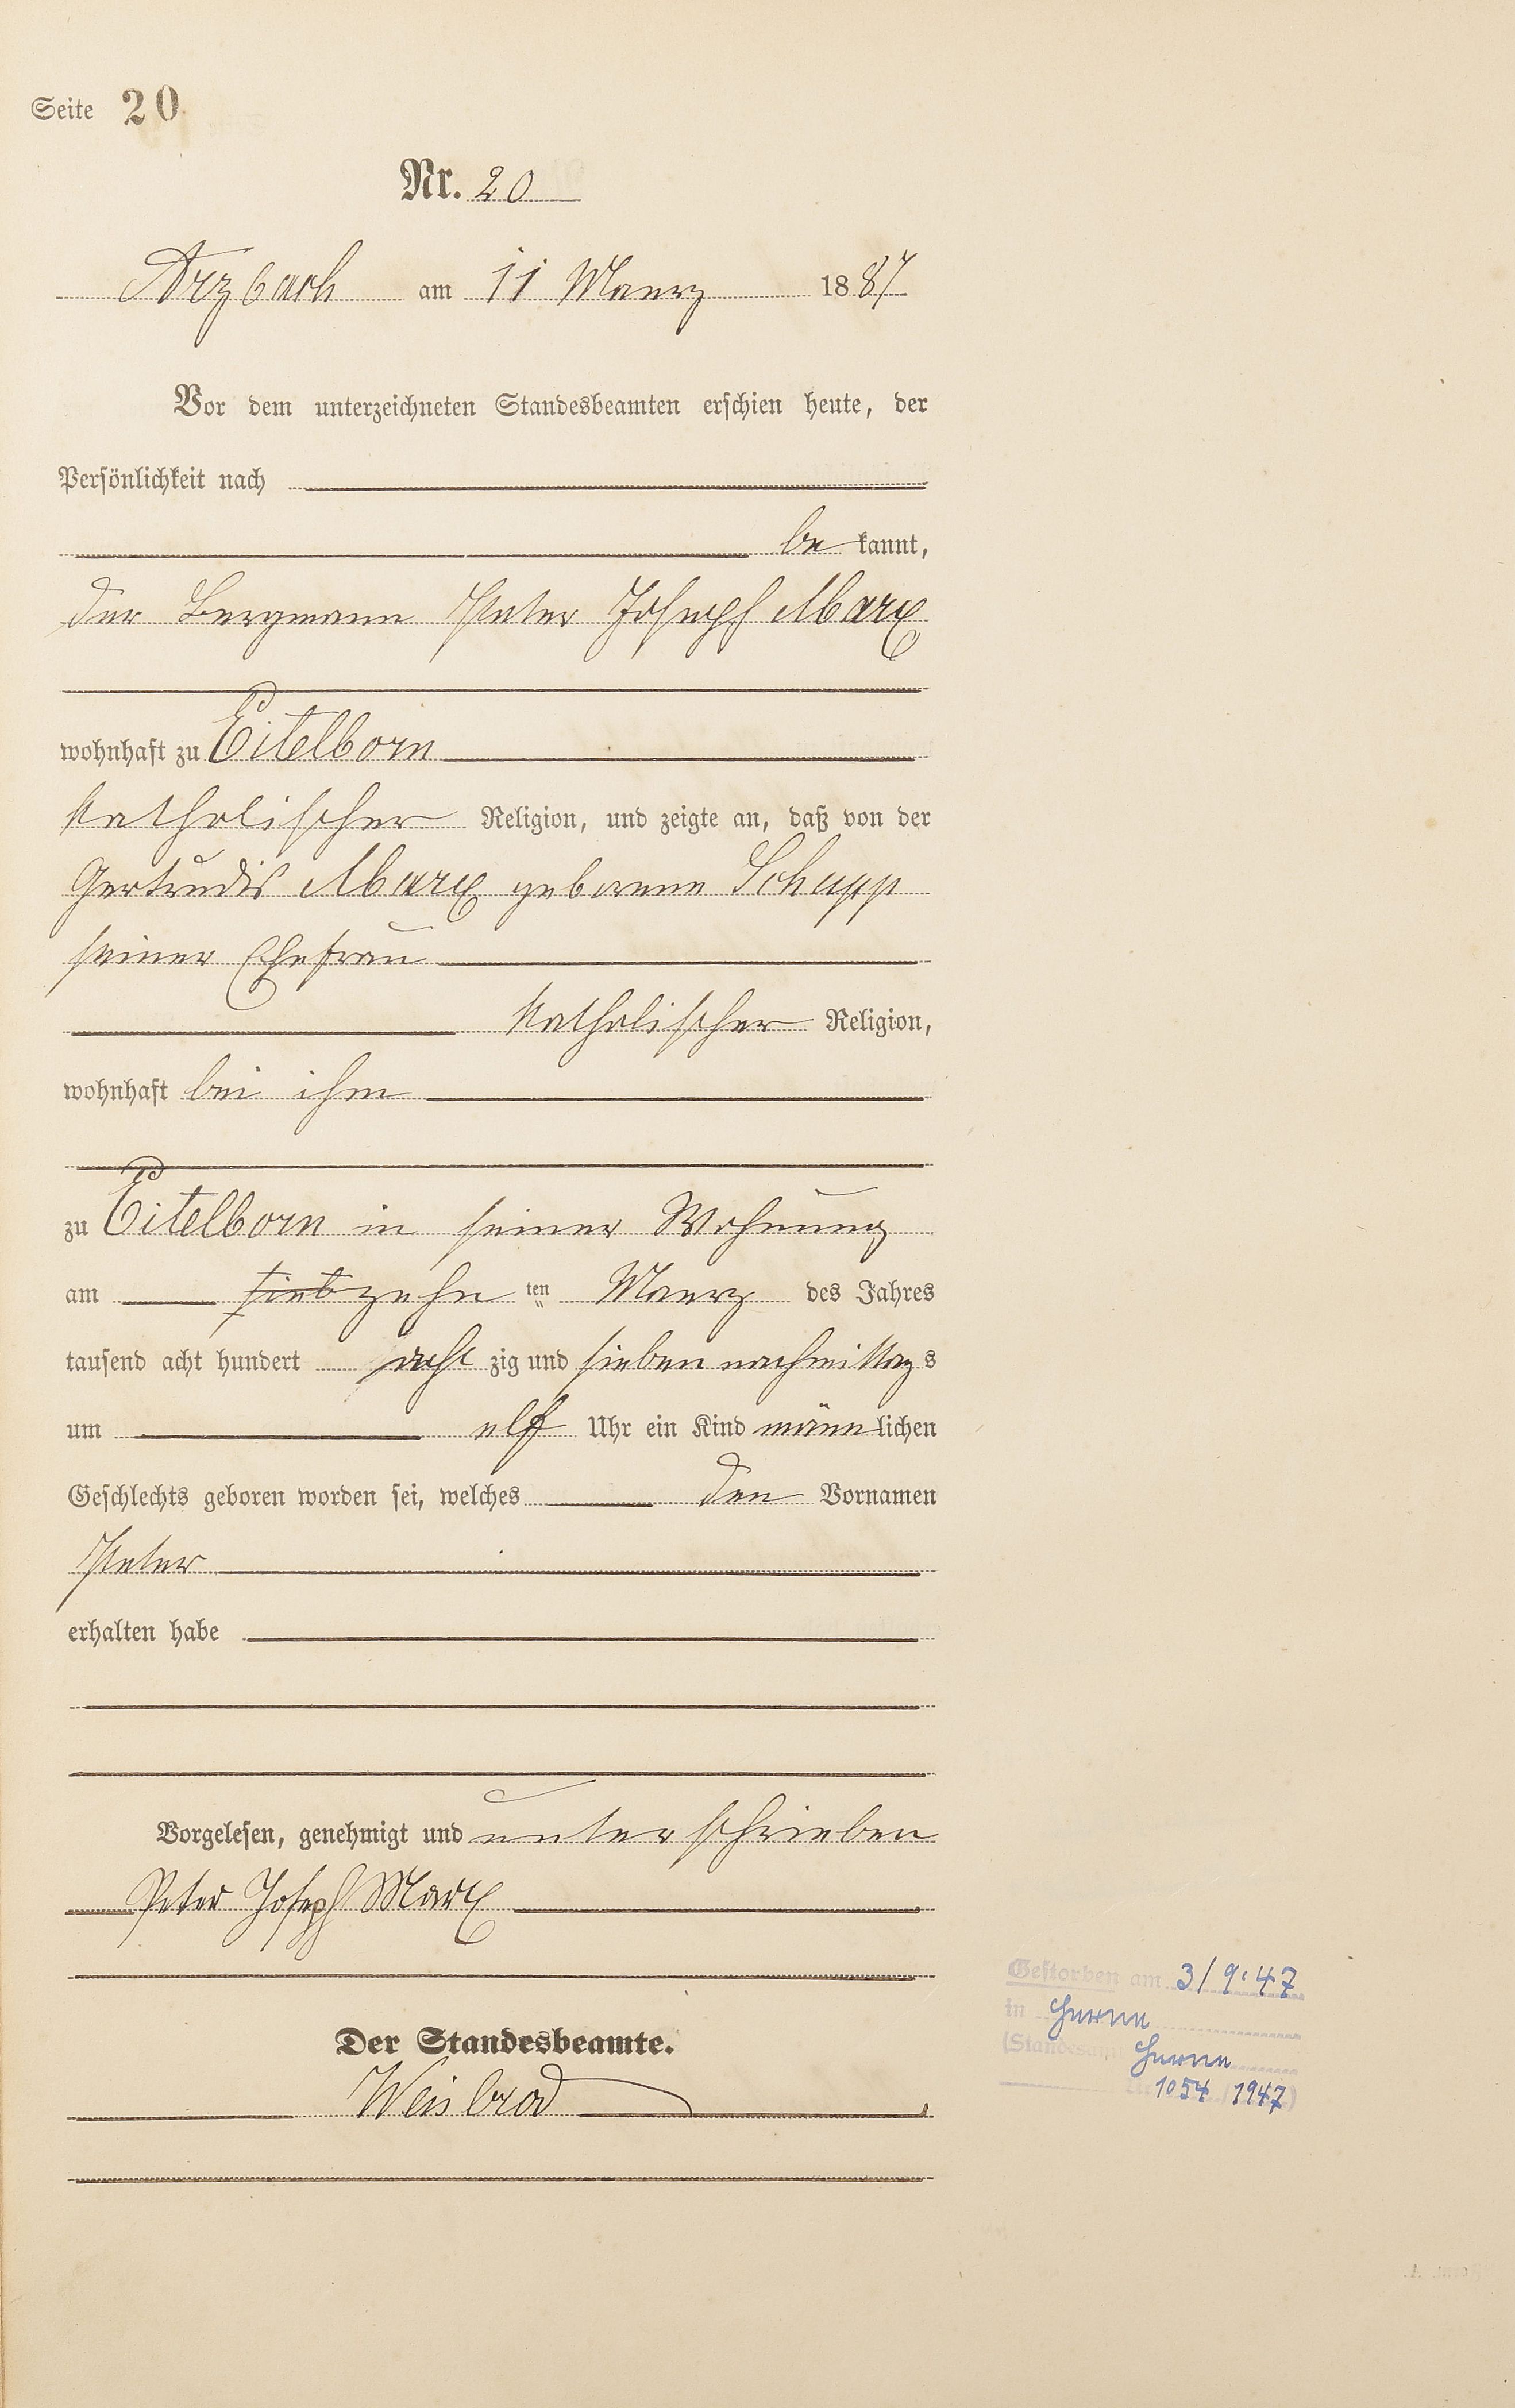 Seite 20
Nr. 20
Arzbach am 11 Maerz 1887
Vor dem unterzeichneten Standesbeamten erschien heute, der
Persönlichkeit nach
bekannt,
der Bergmann Peter Joseph Marx
wohnhaft zu Eitelborn
katholischer Religion, und zeigte an, daß von der
Gertrudis Marx geborene Schupp
seiner Ehefrau
katholischer Religion,
wohnhaft bei ihm
zu Eitelborn in seiner Wohnung
am siebzehnten Maerz des Jahres
tausend acht hundert achtzig und sieben nachmittags
um elf Uhr ein Kind männlichen
Geschlechts geboren worden sei, welches den Vornamen
Peter
erhalten habe
Vorgelesen, genehmigt und unterschrieben
Peter Joseph Marx
Der Standesbeamte.
Weisbrod
Gestorben am 3/9.47
in Herne
(Standesamt Herne
Nr. 1054/1947)